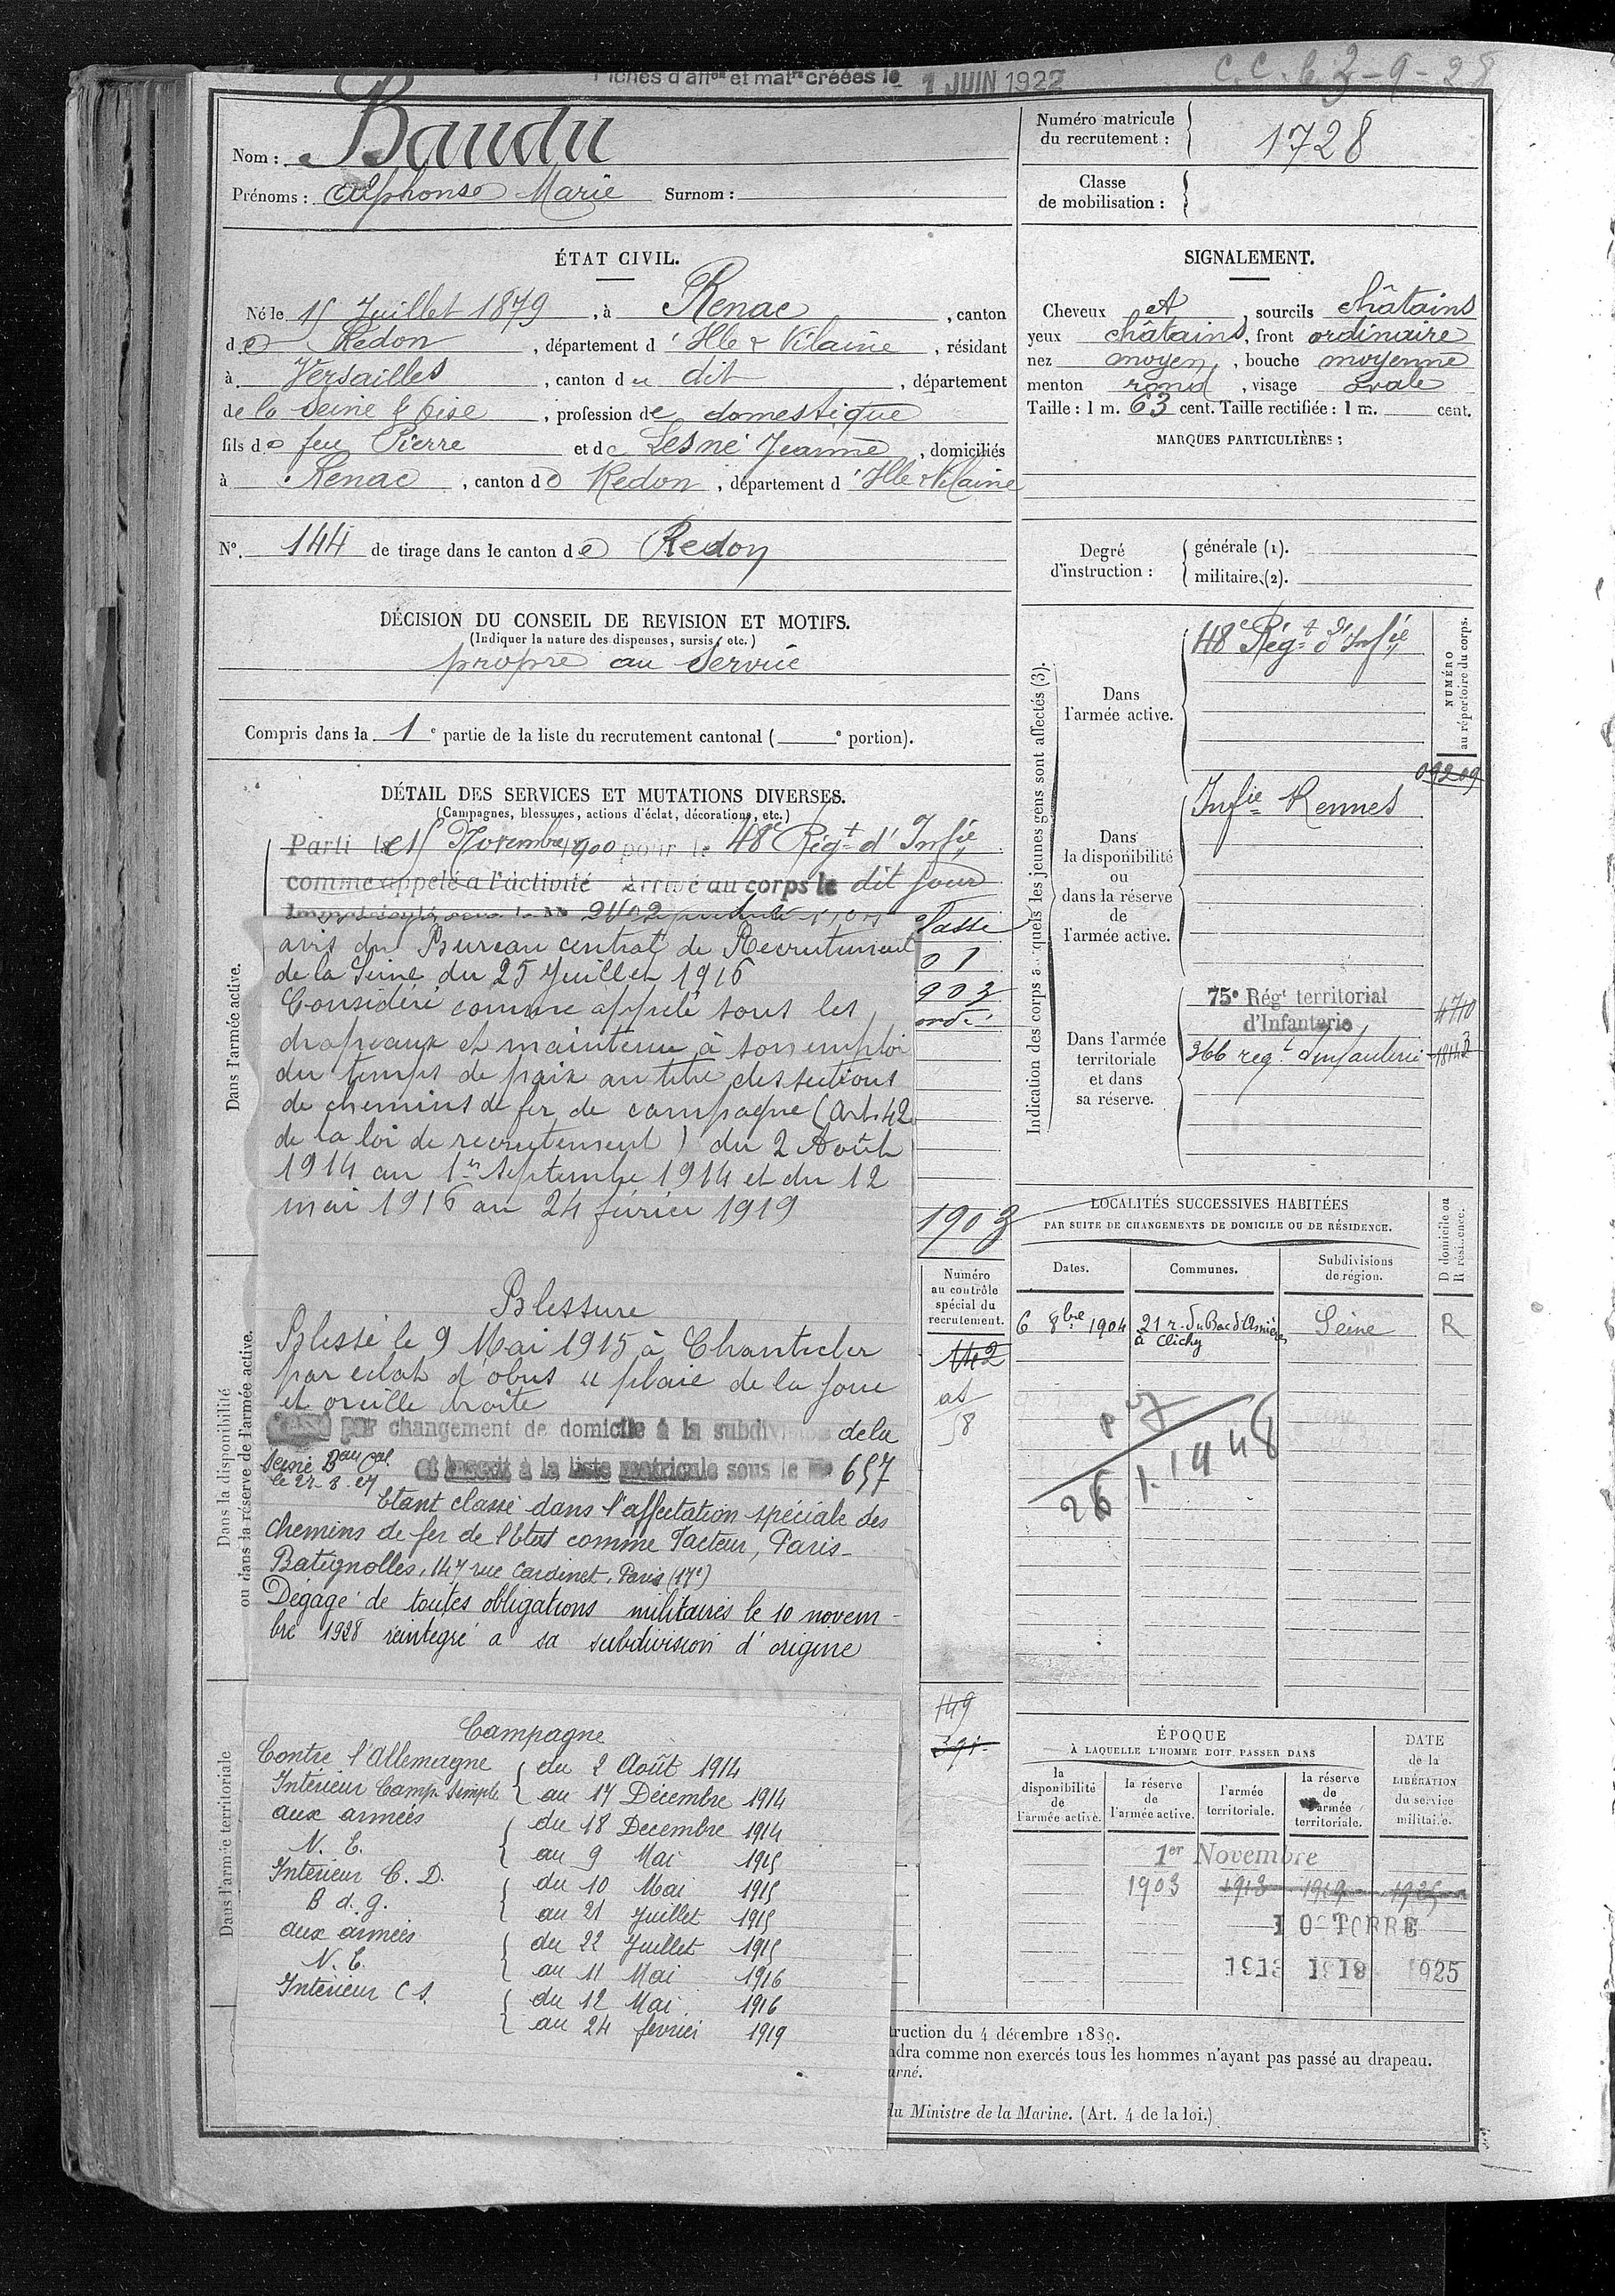 Fiches d'aff^on et mat^re créées le 1 JUIN 1922
C.C. 3-9-28
Nom : Baudu
Prénoms : Alphonse Marie Surnom :
Numéro matricule du recrutement : 1728
Classe de mobilisation :
ÉTAT CIVIL.
Né le 15 Juillet 1879, à Renac, canton
de Redon, département d'Ille & Vilaine, résidant
à Versailles, canton du dit, département
de la Seine & Oise, profession de domestique
fils de feu Pierre et de Lesné Jeanne, domiciliés
à Renac, canton de Redon, département d'Ille & Vilaine
N°. 144 de tirage dans le canton de Redon
SIGNALEMENT.
Cheveux et, sourcils châtains
yeux châtains, front ordinaire
nez moyen, bouche moyenne
menton rond, visage ovale
Taille : 1 m. 63 cent. Taille rectifiée : 1 m. cent.
MARQUES PARTICULIÈRES :
Degré d'instruction : générale (1). militaire (2).
DÉCISION DU CONSEIL DE REVISION ET MOTIFS.
(Indiquer la nature des dispenses, sursis, etc.)
propre au service
Compris dans la 1e partie de la liste du recrutement cantonal ( e portion).
DÉTAIL DES SERVICES ET MUTATIONS DIVERSES.
(Campagnes, blessures, actions d'éclat, décorations, etc.)
Parti le 15 Novembre 1900 pour le 48e Régt d'Infie
comme appelé à l'activité Arrivé au corps le dit jour
avis du Bureau central de Recrutement
de la Seine du 25 Juillet 1916
Considéré comme appelé sous les
drapeaux et maintenu à son emploi
du temps de paix au titre des sections
de chemins de fer de campagne (Art. 42
de la loi de recrutement) du 2 Août
1914 au 1er Septembre 1914 et du 12
mai 1916 au 24 février 1919
Blessure
Blessé le 9 Mai 1915 à Chantecler
par éclat d'obus u plaie de la joue
et oreille droite
par changement de domicile à la subdivision de la
Seine Bau Cal
le 22-8-27
et inscrit à la liste matricule sous le No 657
Etant classé dans l'affectation spéciale des
chemins de fer de l'Etat comme Facteur, Paris-
Batignolles, 147 rue Cardinet, Paris (17e)
Dégagé de toutes obligations militaires le 10 novem-
bre 1928 réintégré à sa subdivision d'origine
Campagne
Contre l'Allemagne
Intérieur Camp. Simple du 2 Août 1914
au 17 Décembre 1914
aux armées du 18 Décembre 1914
N. E. au 9 Mai 1915
Intérieur C. D. du 10 Mai 1915
B d. g. au 21 Juillet 1915
aux armées du 22 Juillet 1915
N. E. au 11 Mai 1916
Intérieur C S. du 12 Mai 1916
au 24 février 1919
Dans l'armée active.
Dans la disponibilité
ou dans la réserve de l'armée active.
Dans l'armée territoriale
01
903
1903
Numéro
au contrôle
spécial du
recrutement.
142
at
58
149
Indication des corps auxquels les jeunes gens sont affectés (3).
NUMÉRO
au répertoire du corps.
Dans l'armée active. 48e Régt d'Infie
09209
Dans la disponibilité ou dans la réserve de l'armée active. Infie Rennes
Dans l'armée territoriale et dans sa réserve.
75e Régt territorial d'Infanterie 4710
366 regt d'infanterie
LOCALITÉS SUCCESSIVES HABITÉES
PAR SUITE DE CHANGEMENTS DE DOMICILE OU DE RÉSIDENCE.
Dates. Communes. Subdivisions de région. D domicile ou R résidence.
6 8bre 1904 21 r. du Bac d'Asnières à Clichy Seine R
26 1. 1948
ÉPOQUE
À LAQUELLE L'HOMME DOIT PASSER DANS
la disponibilité de l'armée active.
la réserve de l'armée active.
l'armée territoriale.
la réserve de l'armée territoriale.
DATE de la LIBÉRATION du service militaire.
1er Novembre
1903 1913 1919 1925
1 OCTOBRE
1913 1919 1925
truction du 4 décembre 1889.
ndra comme non exercés tous les hommes n'ayant pas passé au drapeau.
urné.
du Ministre de la Marine. (Art. 4 de la loi.)